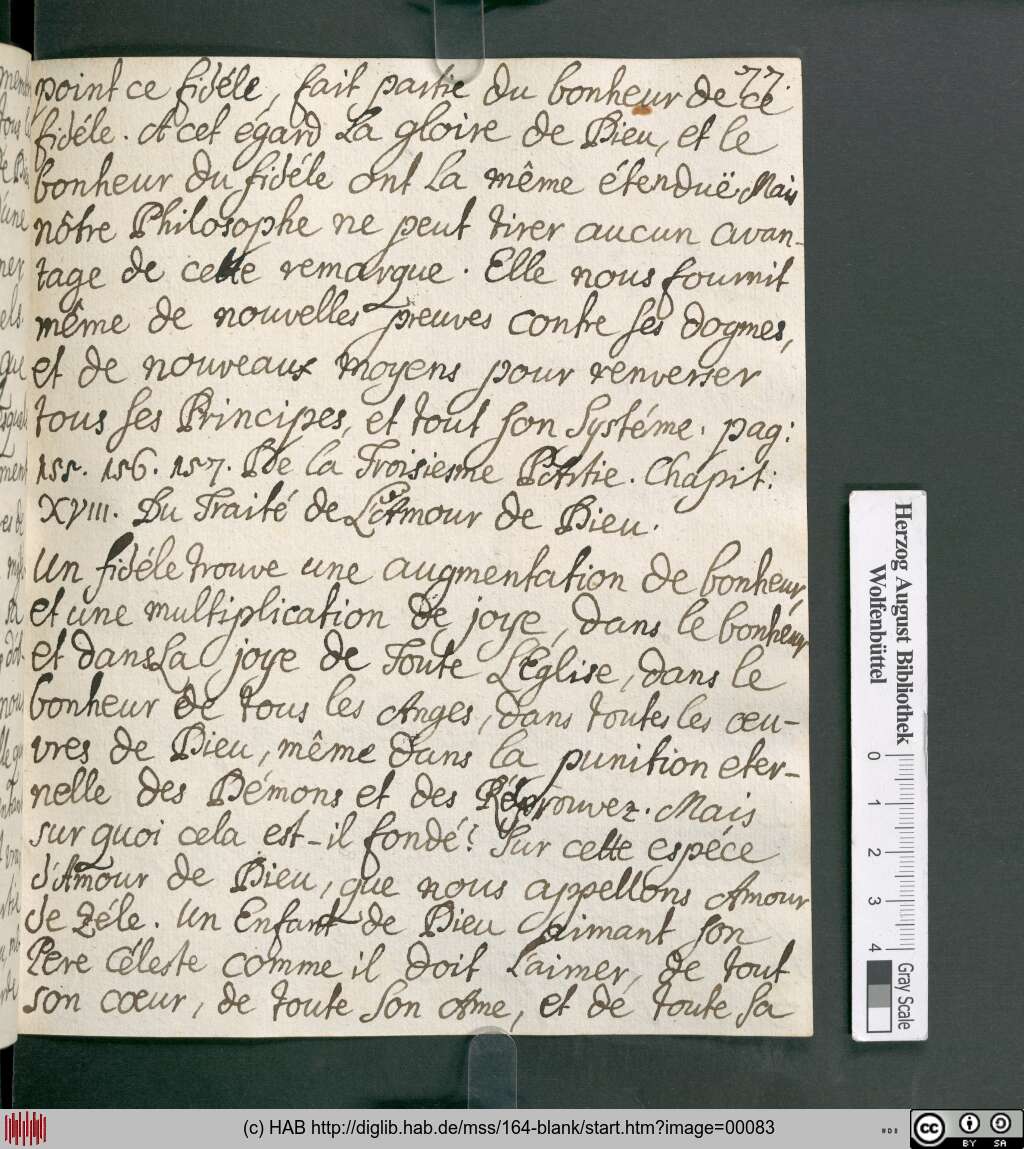 77.
point ce fidéle, fait partie du bonheur de ce
fidéle. A cet égard La gloire de Dieu, et le
bonheur du fidéle ont La même étenduë. Mais
nôtre Philosophe ne peut tirer aucun avan-
tage de cette remarque. Elle nous fournit
même de nouvelles preuves contre ses dogmes,
et de nouveaux moyens pour renverser
tous ses Principes, et tout son Systéme. pag:
155. 156. 157. De la Troisiesme PArtie. Chapit:
XVIII. Du Traité de L'Amour de Dieu.
Un fidéle trouve une augmentation de bonheur,
et une multiplication de joye, dans le bonheur
et dans La joye de Toute L'Eglise, dans le
bonheur de tous les Anges, dans toutes les œu-
vres de Dieu, même dans la punition eter-
nelle des Démons et des Réprouvez. Mais
sur quoi cela est-il fondé? Sur cette espéce
d'Amour de Dieu, que nous appellons Amour
de Zéle. Un Enfant de Dieu aimant son
Pere Céleste comme il doit L'aimer, de tout
son cœur, de toute son Ame, et de toute sa
Herzog August Bibliothek
Wolfenbüttel
0 1 2 3 4
Gray Scale
(c) HAB http://diglib.hab.de/mss/164-blank/start.htm?image=00083
cc BY SA